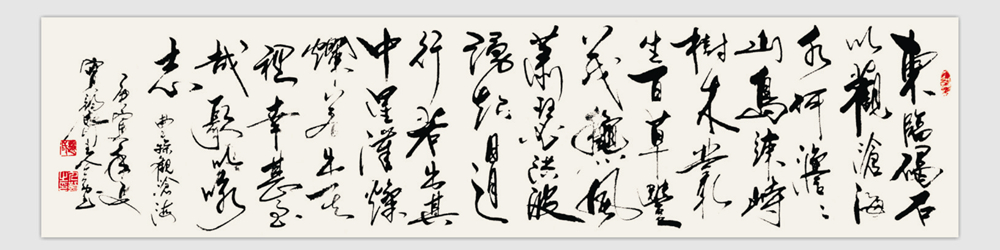 東臨碣石
以觀滄海
水何澹〻
山島竦峙
樹木叢
生百草豐
茂穐風
蕭瑟洪波
湧起日月
行若出其
中星漢燦
爛若出其
裡幸甚至
哉歌以咏
志
曹操觀滄海
寅年